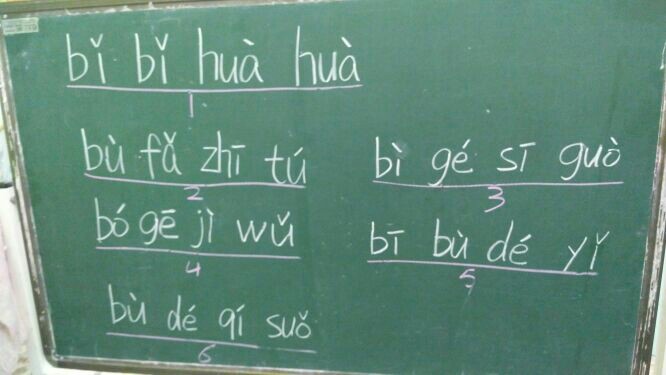 bǐ bǐ huà huà
1
bù fǎ zhī tú
2
bì gé sī guò
3
bó gē jì wǔ
4
bī bù dé yǐ
5
bù dé qí suǒ
6